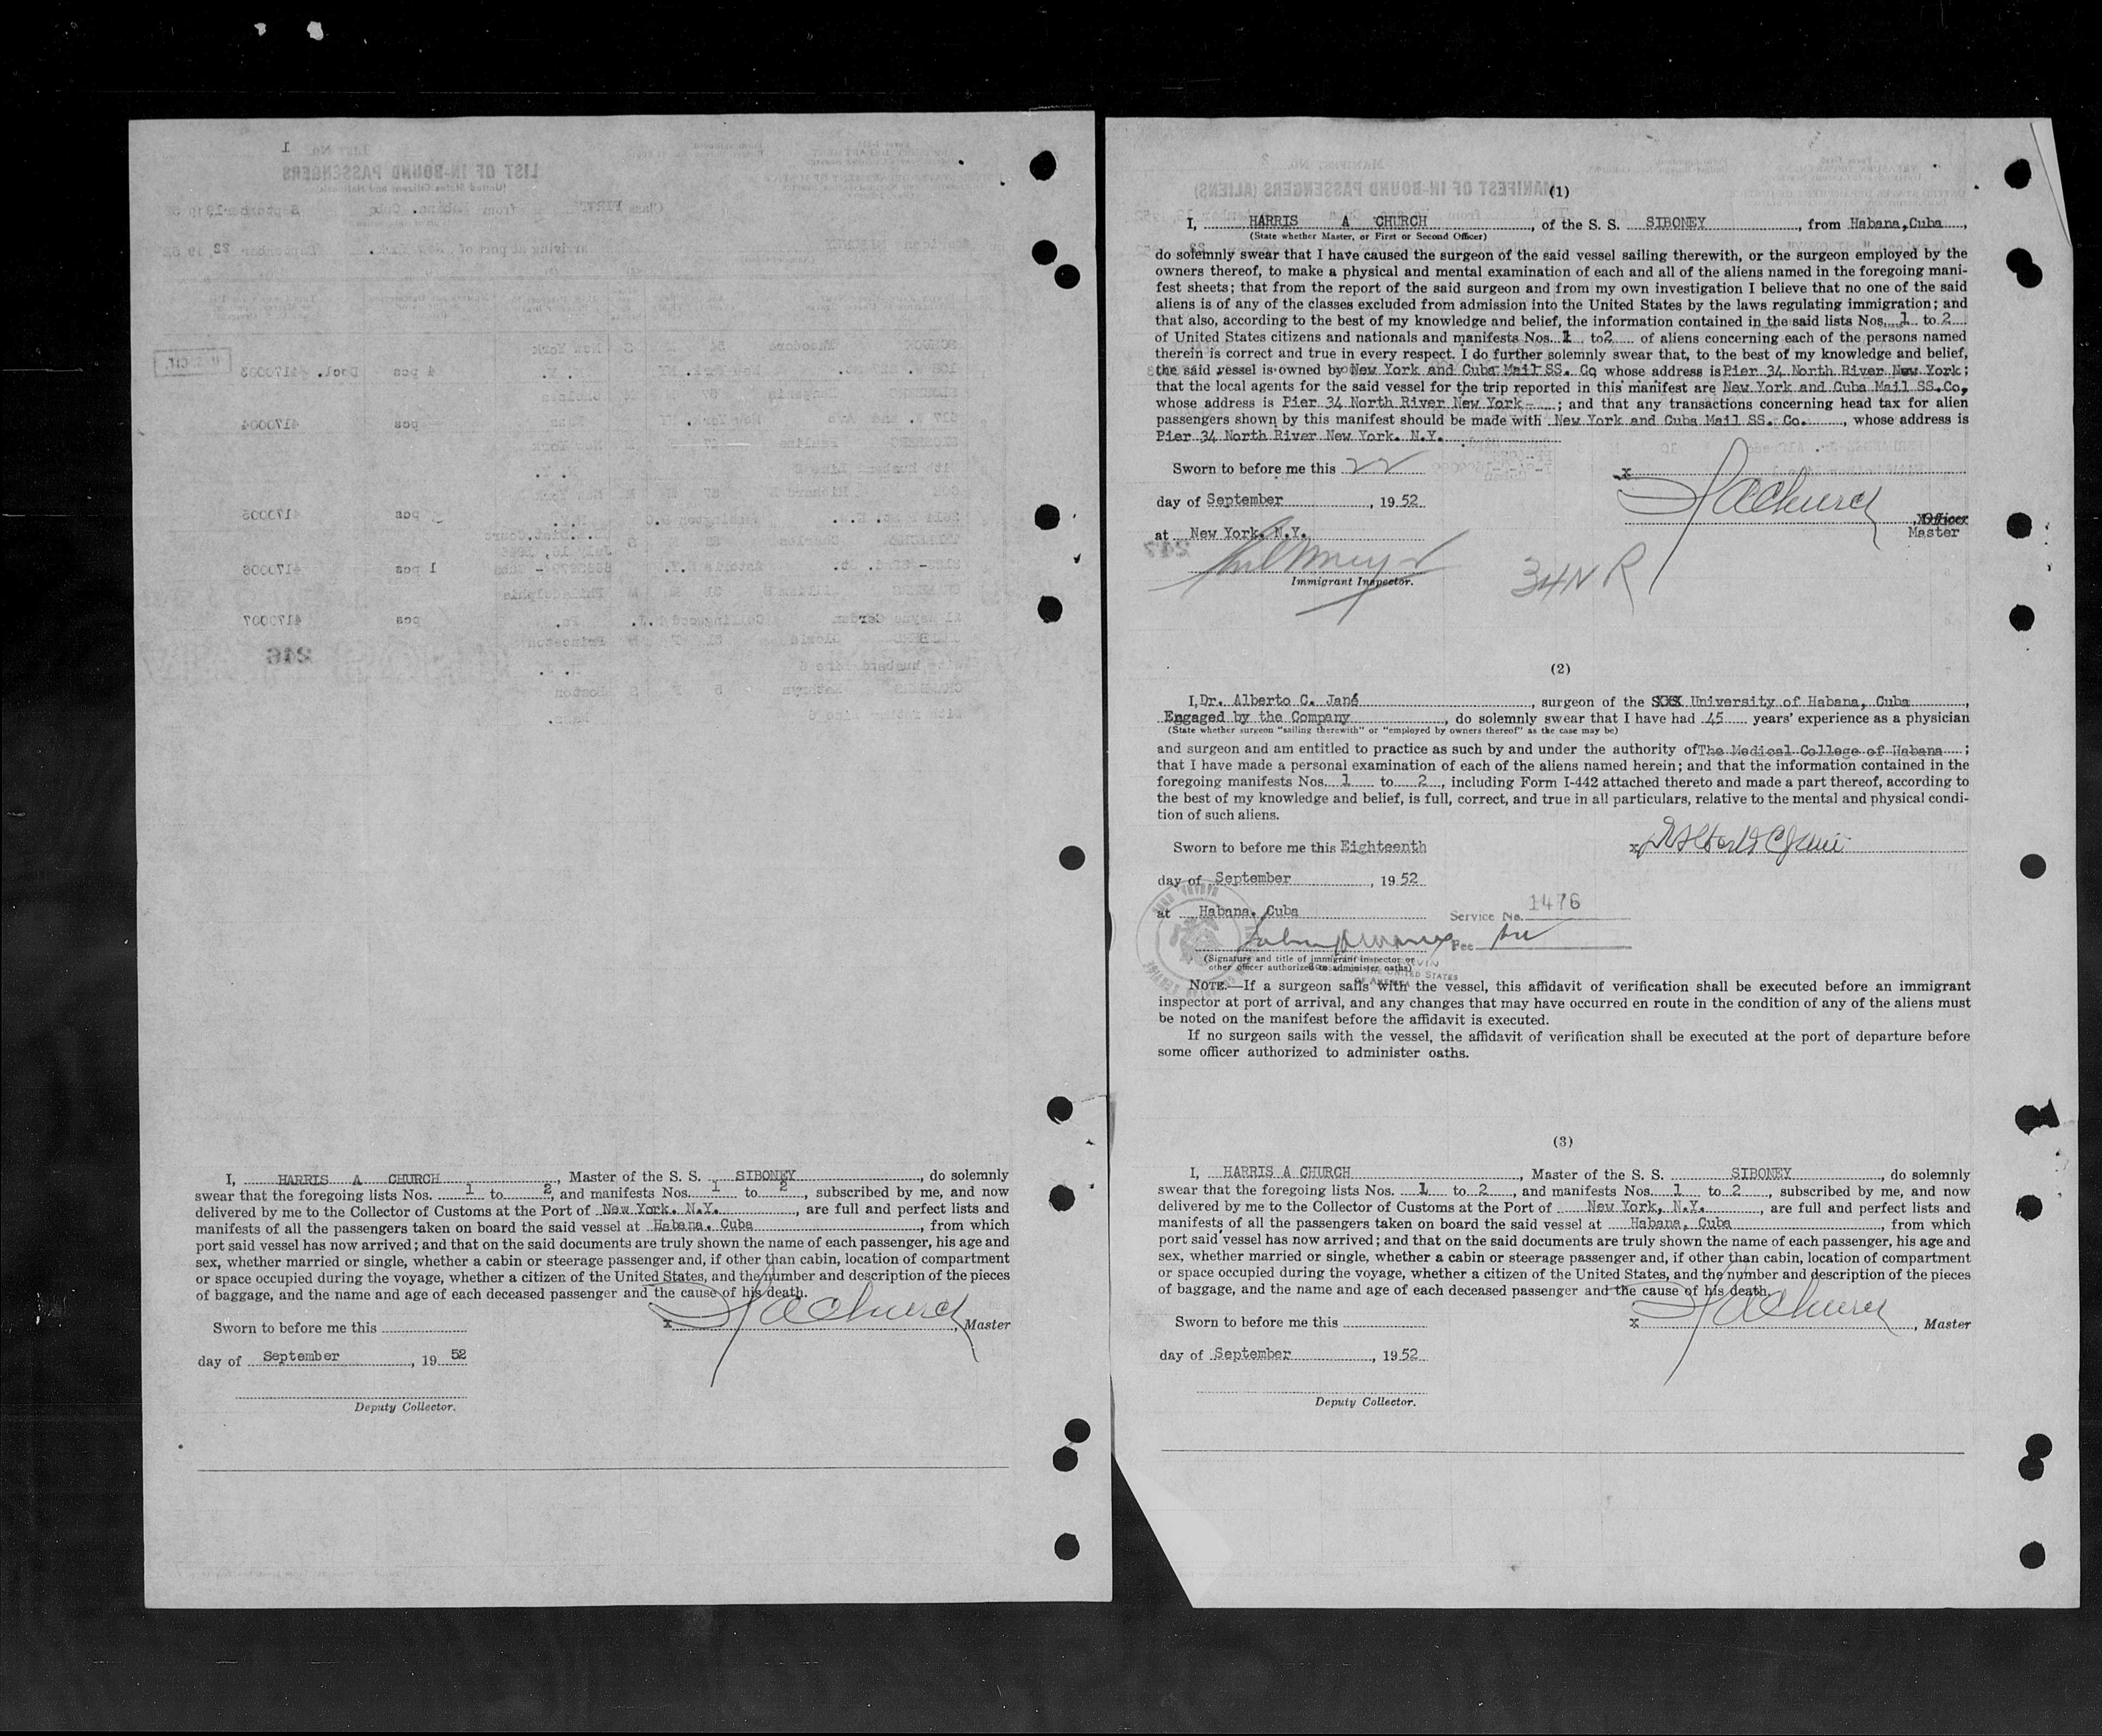 I, HARRIS A CHURCH, Master of the S. S. SIBONEY, do solemnly
swear that the foregoing lists Nos. 1 to 2, and manifests Nos. 1 to 2, subscribed by me, and now
delivered by me to the Collector of Customs at the Port of New York. N.Y., are full and perfect lists and
manifests of all the passengers taken on board the said vessel at Habana. Cuba, from which
port said vessel has now arrived; and that on the said documents are truly shown the name of each passenger, his age and
sex, whether married or single, whether a cabin or steerage passenger and, if other than cabin, location of compartment
or space occupied during the voyage, whether a citizen of the United States, and the number and description of the pieces
of baggage, and the name and age of each deceased passenger and the cause of his death.
Sworn to before me this
x HAChurch, Master
day of September, 19 52
Deputy Collector.
(1)
I, HARRIS A CHURCH, of the S. S. SIBONEY, from Habana,Cuba,
(State whether Master, or First or Second Officer)
do solemnly swear that I have caused the surgeon of the said vessel sailing therewith, or the surgeon employed by the
owners thereof, to make a physical and mental examination of each and all of the aliens named in the foregoing mani-
fest sheets; that from the report of the said surgeon and from my own investigation I believe that no one of the said
aliens is of any of the classes excluded from admission into the United States by the laws regulating immigration; and
that also, according to the best of my knowledge and belief, the information contained in the said lists Nos. 1 to 2
of United States citizens and nationals and manifests Nos. 1 to 2 of aliens concerning each of the persons named
therein is correct and true in every respect. I do further solemnly swear that, to the best of my knowledge and belief,
the said vessel is owned by New York and Cuba Mail SS. Co, whose address is Pier 34 North River New York;
that the local agents for the said vessel for the trip reported in this manifest are New York and Cuba Mail SS.Co,
whose address is Pier 34 North River New York-; and that any transactions concerning head tax for alien
passengers shown by this manifest should be made with New York and Cuba Mail SS. Co., whose address is
Pier 34 North River New York. N.Y.
Sworn to before me this 22
x HAChurch
day of September, 19 52
, Officer
Master
at New York. N.Y.
Immigrant Inspector.
34 N R
(2)
I, Dr. Alberto C. Jané, surgeon of the SXX University of Habana, Cuba,
Engaged by the Company, do solemnly swear that I have had 45 years' experience as a physician
(State whether surgeon "sailing therewith" or "employed by owners thereof" as the case may be)
and surgeon and am entitled to practice as such by and under the authority of The Medical College of Habana;
that I have made a personal examination of each of the aliens named herein; and that the information contained in the
foregoing manifests Nos. 1 to 2, including Form I-442 attached thereto and made a part thereof, according to
the best of my knowledge and belief, is full, correct, and true in all particulars, relative to the mental and physical condi-
tion of such aliens.
Sworn to before me this Eighteenth
x
day of September, 19 52
at Habana. Cuba
Service No. 1476
Fee
(Signature and title of immigrant inspector or
other officer authorized to administer oaths)
UNITED STATES
OF AMERICA
NOTE.—If a surgeon sails with the vessel, this affidavit of verification shall be executed before an immigrant
inspector at port of arrival, and any changes that may have occurred en route in the condition of any of the aliens must
be noted on the manifest before the affidavit is executed.
If no surgeon sails with the vessel, the affidavit of verification shall be executed at the port of departure before
some officer authorized to administer oaths.
(3)
I, HARRIS A CHURCH, Master of the S. S. SIBONEY, do solemnly
swear that the foregoing lists Nos. 1 to 2, and manifests Nos. 1 to 2, subscribed by me, and now
delivered by me to the Collector of Customs at the Port of New York, N.Y., are full and perfect lists and
manifests of all the passengers taken on board the said vessel at Habana, Cuba, from which
port said vessel has now arrived; and that on the said documents are truly shown the name of each passenger, his age and
sex, whether married or single, whether a cabin or steerage passenger and, if other than cabin, location of compartment
or space occupied during the voyage, whether a citizen of the United States, and the number and description of the pieces
of baggage, and the name and age of each deceased passenger and the cause of his death.
Sworn to before me this
x HAChurch, Master
day of September, 19 52
Deputy Collector.